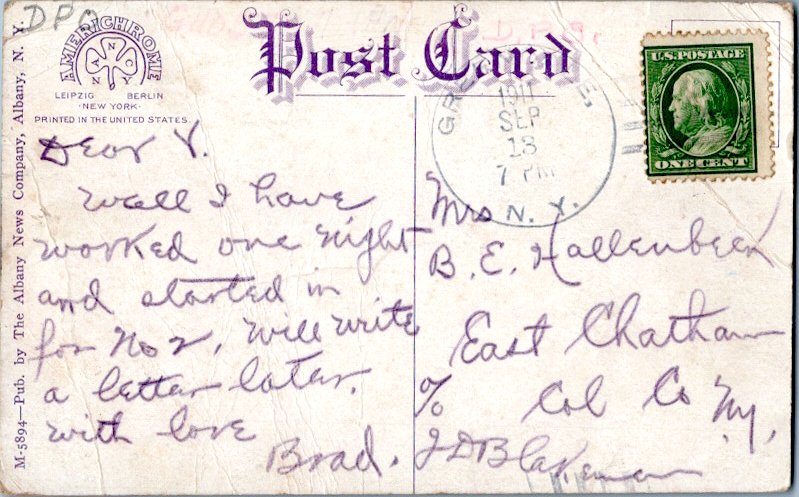 DPO
AMERICHROME
NANCY
LEIPZIG BERLIN
·NEW YORK·
PRINTED IN THE UNITED STATES.
M-5894—Pub. by The Albany News Company, Albany, N. Y.
Post Card
1911
SEP
13
7 PM
N. Y.
U.S. POSTAGE
ONE CENT
Dear V.
Well I have
worked one night
and started in
for No 2, will write
a letter later.
with love
Brad.
Mrs
B. E. Hallenbeck
East Chatham
Col Co NY.
c/o
J D Blakeman